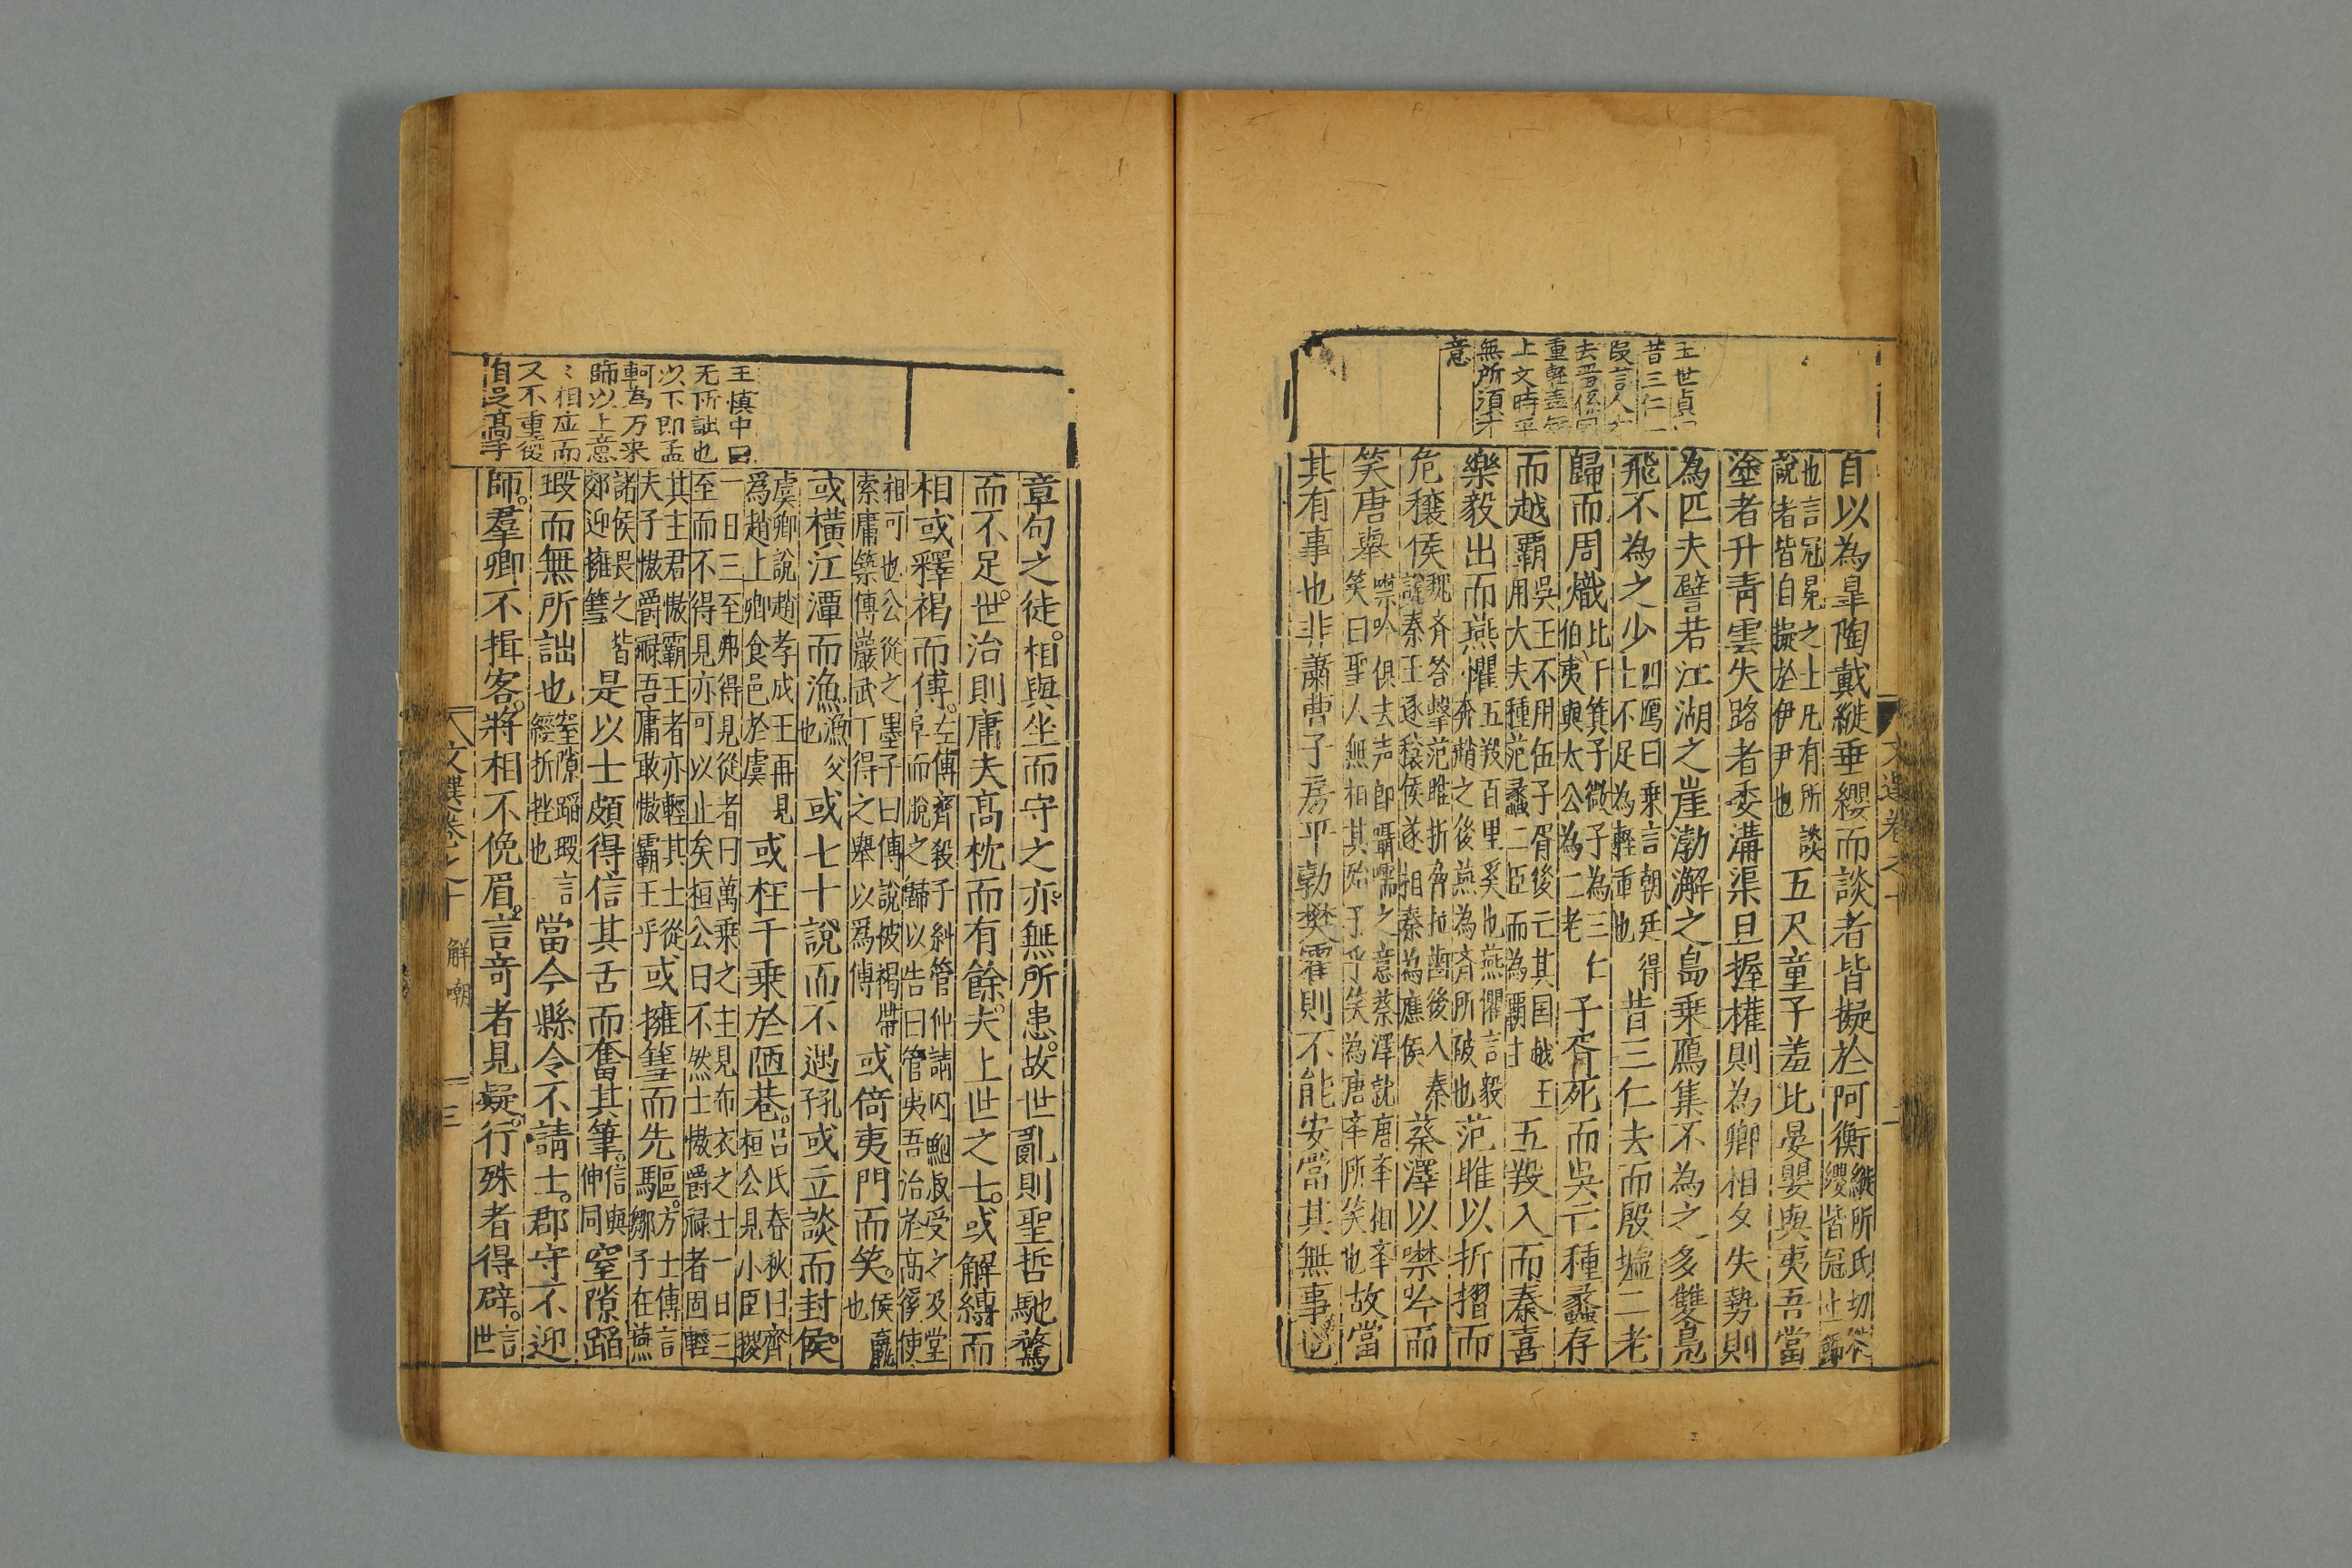 王世貞
昔三仁一
段言人才
去晋係国
重輕盖与
上文時平
無所須才
意
自以為臯陶戴縰垂纓而談者皆擬於阿衡縰所氏切
纓皆冠士飾
也言冠冕之士凡有所談
說者皆自擬於伊尹也五尺童子羞比晏嬰與夷吾當
塗者升青雲失路者委溝渠旦握權則為卿相夕失勢則
為匹夫譬若江湖之崖渤澥之島乗鴈集不為之多雙鳧
飛不為之少四鴈曰乗言朝廷得
士不足為輕重也昔三仁去而殷墟二老
歸而周熾比干箕子微子為三仁
伯夷與太公為二老子胥死而吳亡種蠡存
而越覇吳王不用伍子胥後亡其国越王
用大夫種范蠡二臣而為覇主五羖入而秦喜
樂毅出而燕懼五羖百里奚也燕懼言毅
奔趙之後燕為齊所破也范雎以折摺而
危穰侯魏齐笞擊范雎折脅拉齒後入秦
說秦王逐穰侯遂相秦為應侯蔡澤以噤吟而
笑唐舉噤吟俱去声即囁嚅之意蔡澤說唐㪯相㪯
笑曰聖人無相其殆子乎笑為唐㪯所笑也故當
其有事也非蕭曹子房平勃樊霍則不能安當其無事也
文選卷之十
二
王慎中曰
无所詘也
以下即孟
軻為万乘
師以上意
〻相应而
又不重復
自是高手
章句之徒相與坐而守之亦無所患故世亂則聖哲馳騖
而不足世治則庸夫高枕而有餘夫上世之士或解縛而
相或釋褐而傅左傳齊殺子糾管仲請囚鮑叔受之及堂
阜而脫之歸以告曰管夷吾治於高傒使
相可也公從之墨子曰傅說被褐帶
索庸築傅巖武丁得之舉以為傅或倚夷門而笑侯嬴
也
或橫江潭而漁漁父
也或七十說而不遇孔子或立談而封侯
虞卿說趙孝成王再見
為趙上卿食邑於虞或枉千乗於陋巷吕氏春秋曰齊
桓公見小臣稷
一日三至弗得見從者曰萬乗之主見布衣之士一日三
至而不得見亦可以止矣桓公曰不然士慠爵禄者固輕
其主君慠霸王者亦輕其士從
夫子慠爵禄吾庸敢慠霸王乎或擁篲而先驅方士傳言
鄒子在燕
諸侯畏之皆
郊迎擁篲是以士頗得信其舌而奮其筆信與
伸同窒隙蹈
瑕而無所詘也窒隙蹈瑕言
經折挫也當今縣令不請士郡守不迎
師羣卿不揖客將相不俛眉言奇者見疑行殊者得辟言
世
文選卷之十
解嘲
三